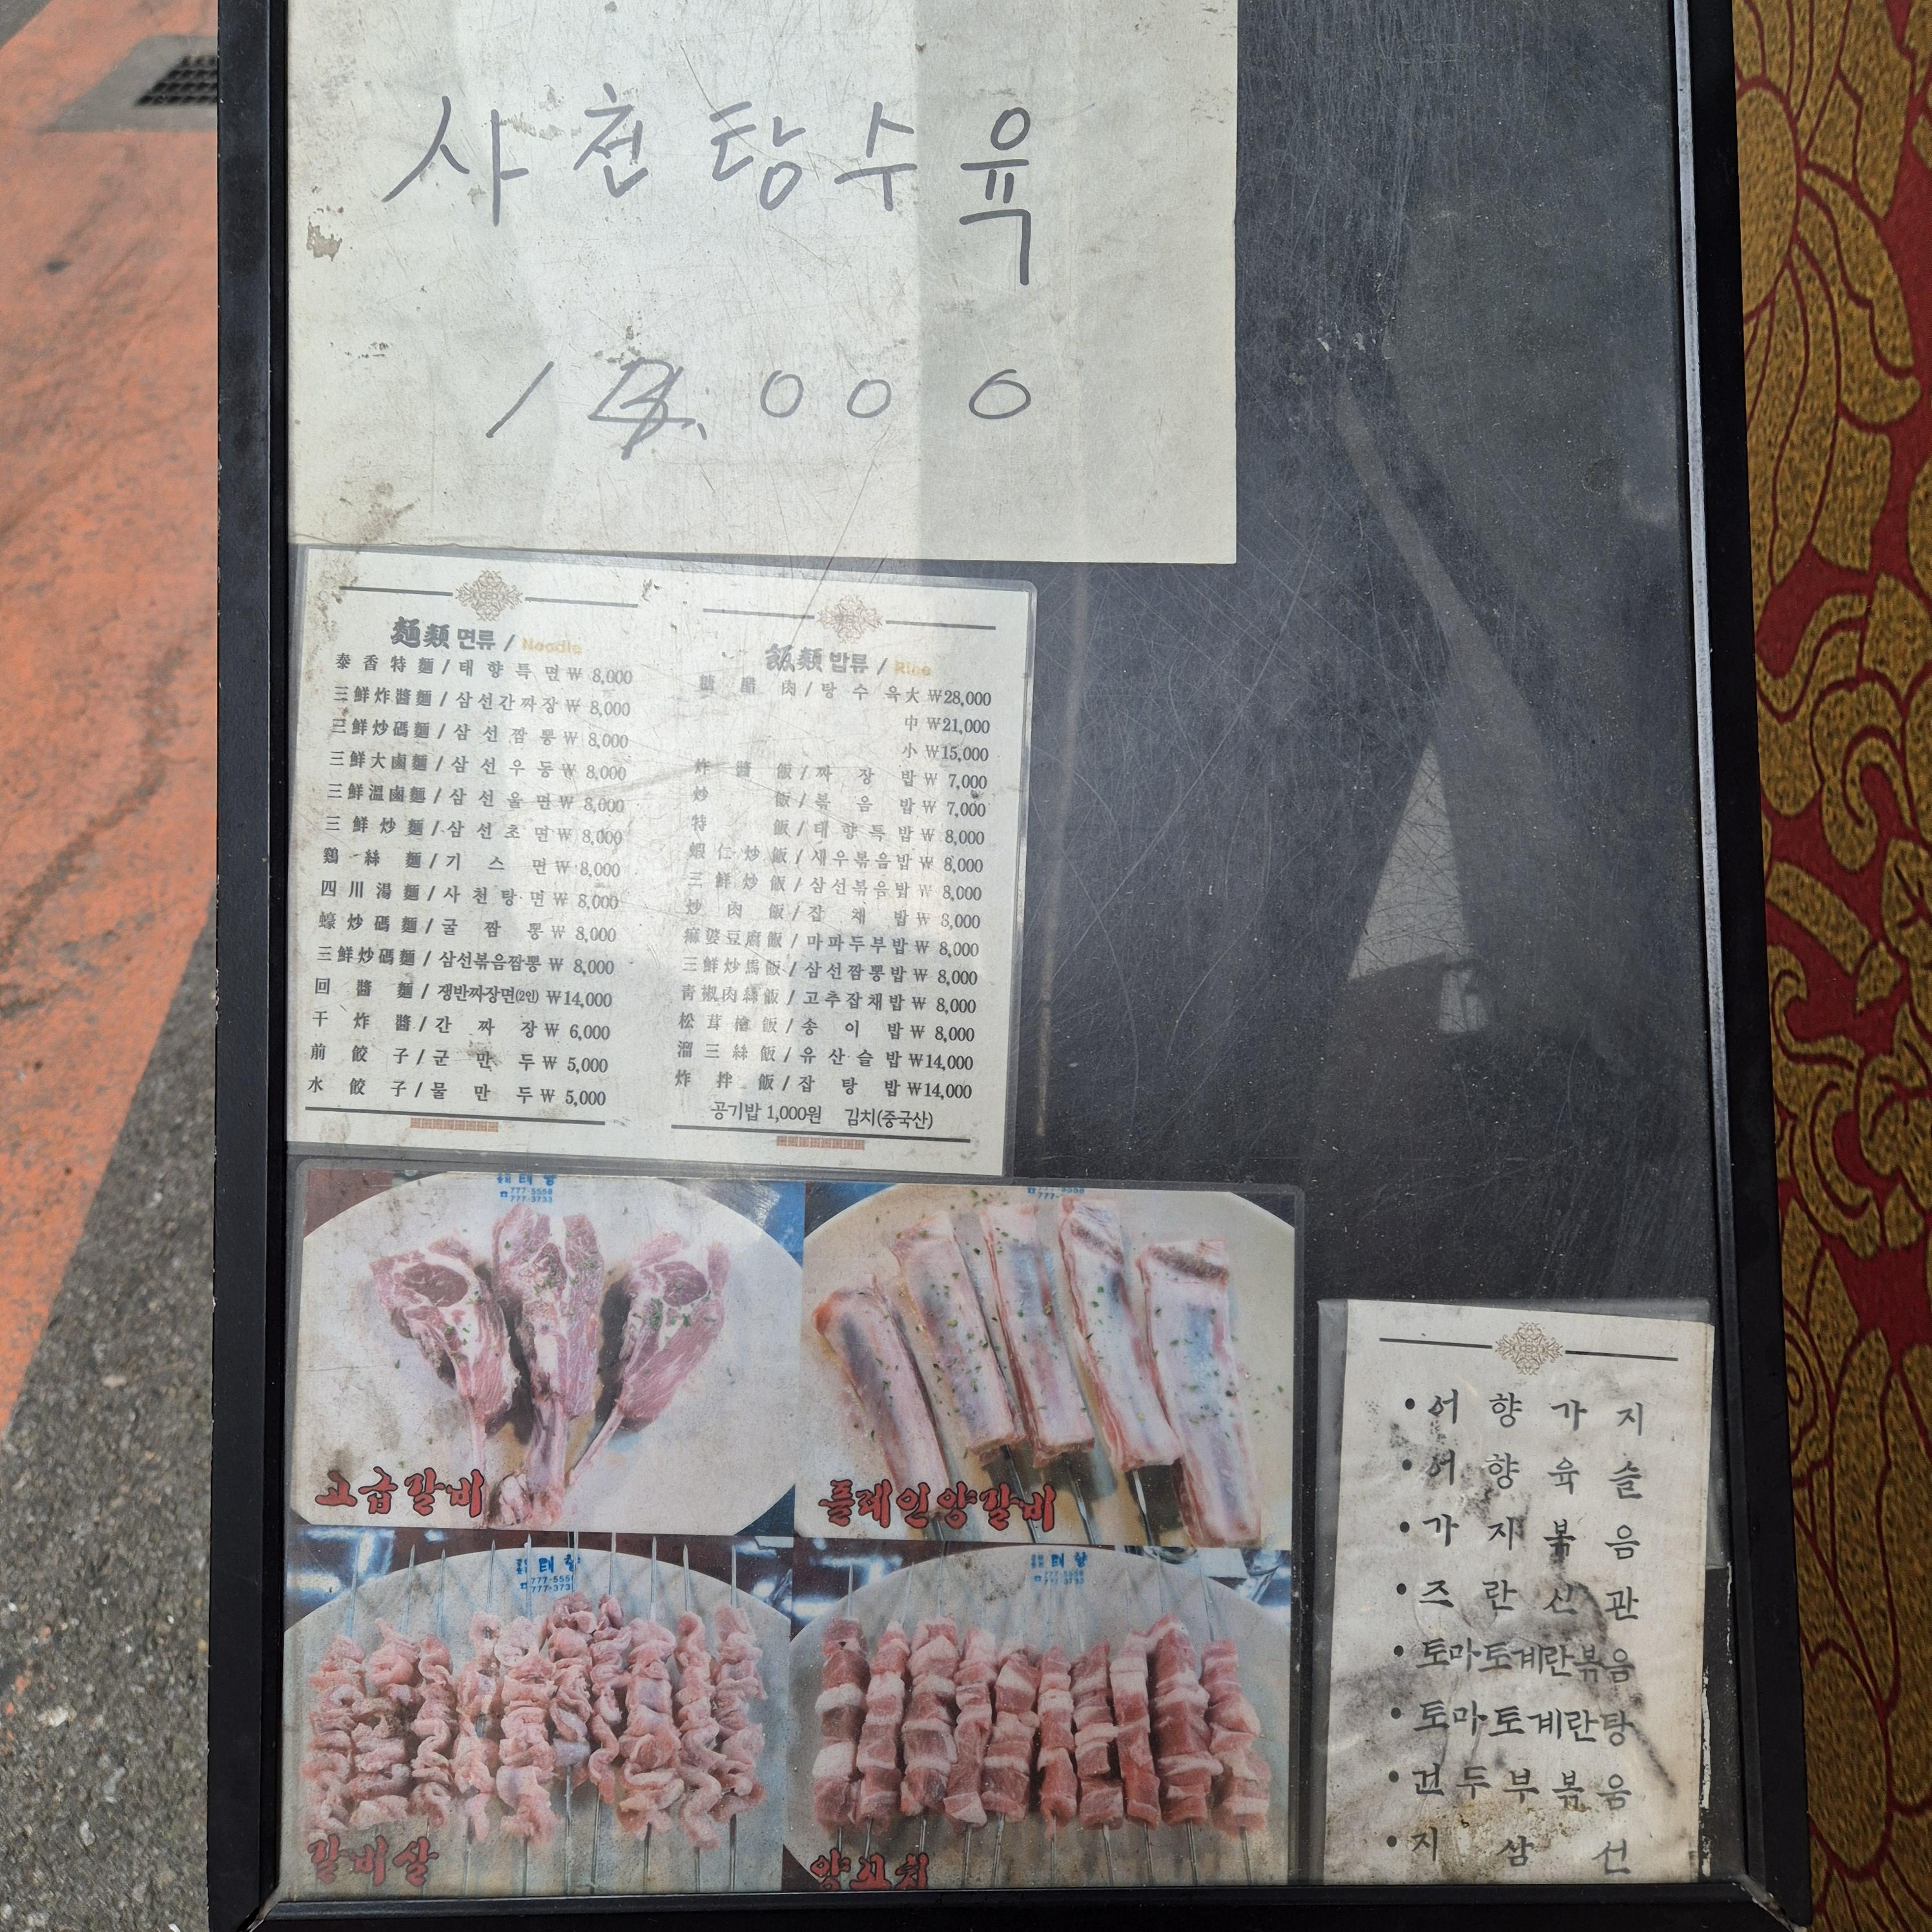 사천탕수육
麵類 면류 / Noodle
泰香特麵 / 태향특면 ₩ 8,000
三鮮炸醬麵 / 삼선간짜장 ₩ 8,000
三鮮炒碼麵 / 삼선짬뽕 ₩ 8,000
三鮮大鹵麵 / 삼선우동 ₩ 8,000
三鮮溫鹵麵 / 삼선울면 ₩ 8,000
三鮮炒麵 / 삼선초면 ₩ 8,000
鷄絲麵 / 기스면 ₩ 8,000
四川湯麵 / 사천탕면 ₩ 8,000
蠔炒碼麵 / 굴짬뽕 ₩ 8,000
三鮮炒碼麵 / 삼선볶음짬뽕 ₩ 8,000
回醬麵 / 쟁반짜장면(2인) ₩14,000
干炸醬 / 간짜장 ₩ 6,000
前餃子 / 군만두 ₩ 5,000
水餃子 / 물만두 ₩ 5,000
飯類 밥류 / Rice
糖醋肉 / 탕수육 大 ₩28,000
中 ₩21,000
小 ₩15,000
炸醬飯 / 짜장밥 ₩ 7,000
炒飯 / 볶음밥 ₩ 7,000
特飯 / 태향특밥 ₩ 8,000
蝦仁炒飯 / 새우볶음밥 ₩ 8,000
三鮮炒飯 / 삼선볶음밥 ₩ 8,000
炒肉飯 / 잡채밥 ₩ 8,000
麻婆豆腐飯 / 마파두부밥 ₩ 8,000
三鮮炒馬飯 / 삼선짬뽕밥 ₩ 8,000
靑椒肉絲飯 / 고추잡채밥 ₩ 8,000
松茸燴飯 / 송이밥 ₩ 8,000
溜三絲飯 / 유산슬밥 ₩14,000
炸拌飯 / 잡탕밥 ₩14,000
공기밥 1,000원 김치(중국산)
태향
777-5558
777-3733
고급갈비
777-5558
플레인양갈비
태향
갈비살
태향
777-5558
777-3733
양꼬치
• 어향가지
• 어향육슬
• 가지볶음
• 즈란신관
• 토마토계란볶음
• 토마토계란탕
• 건두부볶음
• 지삼선